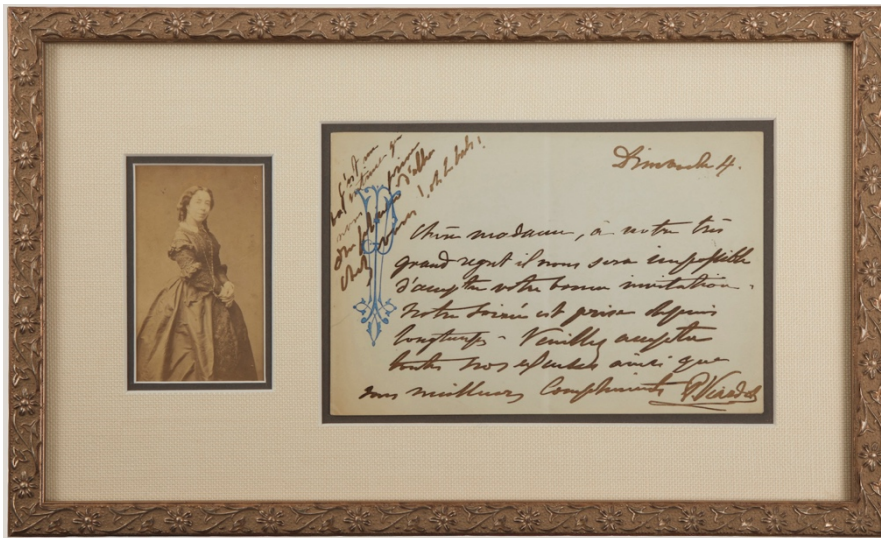 Dimanche 4.
Chère madame, à notre très
grand regret il nous sera impossible
d'accepter votre bonne invitation.
Notre soirée est prise depuis
longtemps - Veuillez accepter
toutes nos excuses ainsi que
nos meilleurs Compliments P. Viardot
c'est une
que
avons
d'aller
chez